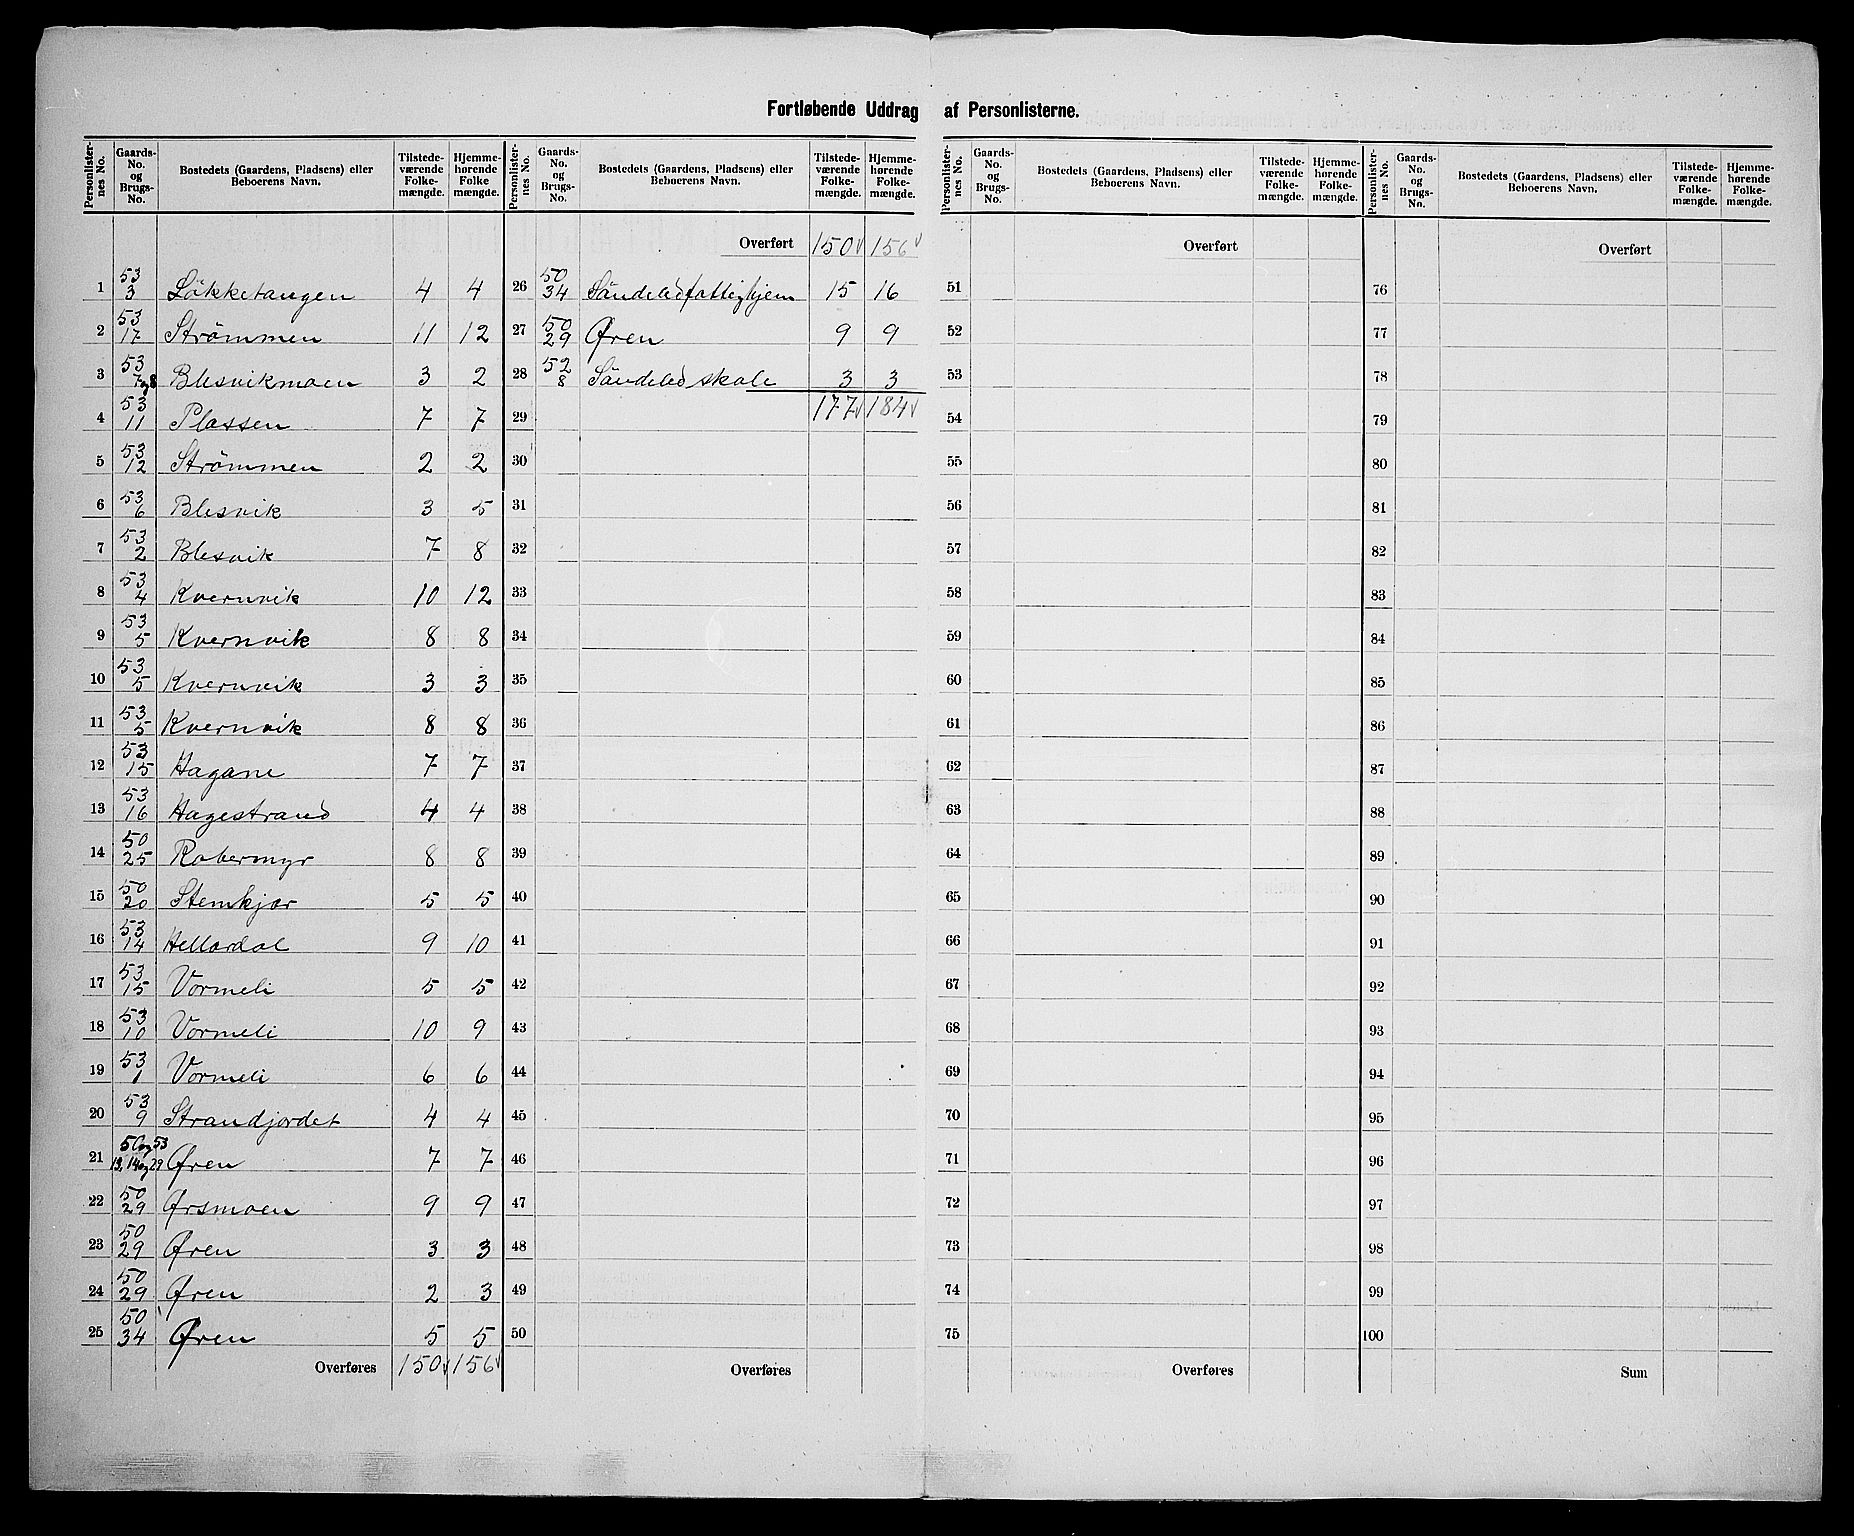 Fortløbende Uddrag af Personlisterne.
Personlister-nes No. | Gaards-No. og Brugs-No. | Bostedets (Gaardens, Pladsens) eller Beboerens Navn. | Tilstede-værende Folke-mængde. | Hjemme-hørende Folke mængde.
1 53/3 Løkketangen 4 4
2 53/17 Strømmen 11 12
3 53/7 og 8 Blesvikmoen 3 2
4 53/11 Plassen 7 7
5 53/12 Strömmen 2 2
6 53/6 Blesvik 3 5
7 53/2 Blesvik 7 8
8 53/4 Kvernvik 10 12
9 53/5 Kvernvik 8 8
10 53/5 Kvernvik 3 3
11 53/5 Kvernvik 8 8
12 53/15 Hagane 7 7
13 53/16 Hagestrand 4 4
14 50/25 Robermyr 8 8
15 50/20 Stemkjær 5 5
16 53/14 Hellardal 9 10
17 53/15 Vormeli 5 5
18 53/10 Vormeli 10 9
19 53/1 Vormeli 6 6
20 53/9 Strandjordet 4 4
21 50 og 53/13, 14 og 29 Øren 7 7
22 50/29 Ørsmoen 9 9
23 50/29 Øren 3 3
24 50/29 Øren 2 3
25 50/34 Øren 5 5
Overføres 150 156
Personlister-nes No. | Gaards-No. og Brugs-No. | Bostedets (Gaardens, Pladsens) eller Beboerens Navn. | Tilstede-værende Folke-mængde. | Hjemme-hørende Folke-mængde.
Overført 150 156
26 50/34 Söndeled fattighjem 15 16
27 50/29 Øren 9 9
28 52/8 Söndeled skole 3 3
29 177 184
30
31
32
33
34
35
36
37
38
39
40
41
42
43
44
45
46
47
48
49
50
Overføres
Personlister-nes No. | Gaards-No. og Brugs-No. | Bostedets (Gaardens, Pladsens) eller Beboerens Navn. | Tilstede-værende Folke-mængde. | Hjemme-hørende Folke-mængde.
Overført
51
52
53
54
55
56
57
58
59
60
61
62
63
64
65
66
67
68
69
70
71
72
73
74
75
Overføres
Personlister-nes No. | Gaards-No. og Brugs-No. | Bostedets (Gaardens, Pladsens) eller Beboerens Navn. | Tilstede-værende Folke-mængde. | Hjemme-hørende Folke-mængde.
Overført
76
77
78
79
80
81
82
83
84
85
86
87
88
89
90
91
92
93
94
95
96
97
98
99
100
Sum